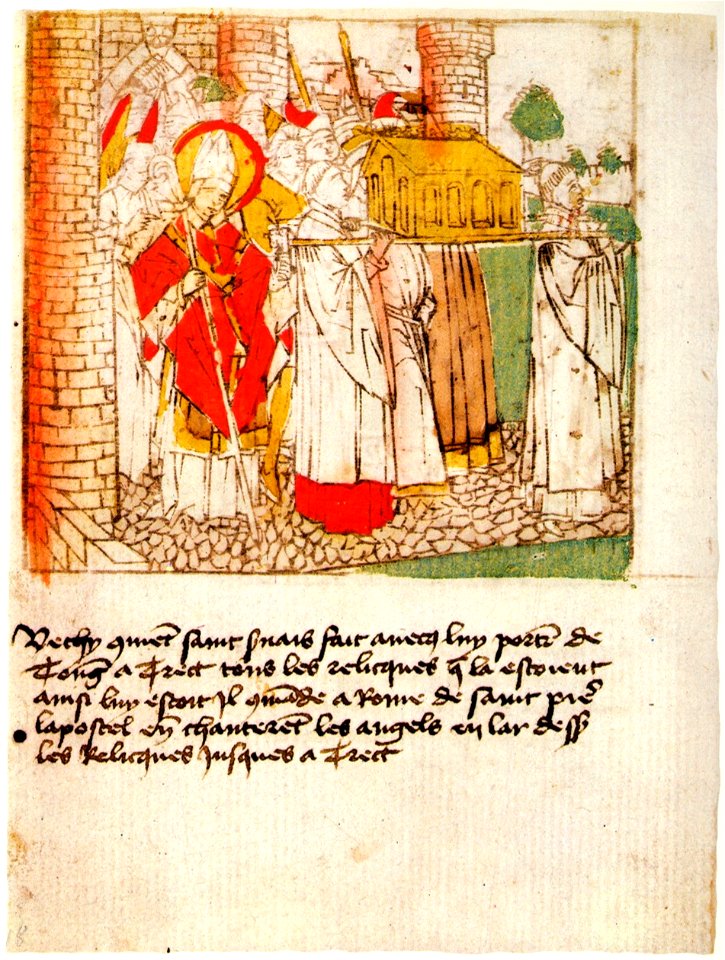 Vechy qmēt saint s̄uais fait auecq luy port̄ de
Tong̅ a Trect tous les relicques q̄ la estoient
ainsi luy estoit Il qmāde a Rome de saint pie᷑
lapostel en̄ chanterēt les angels en lar dess᷒
les Relicques Jusques a Trect